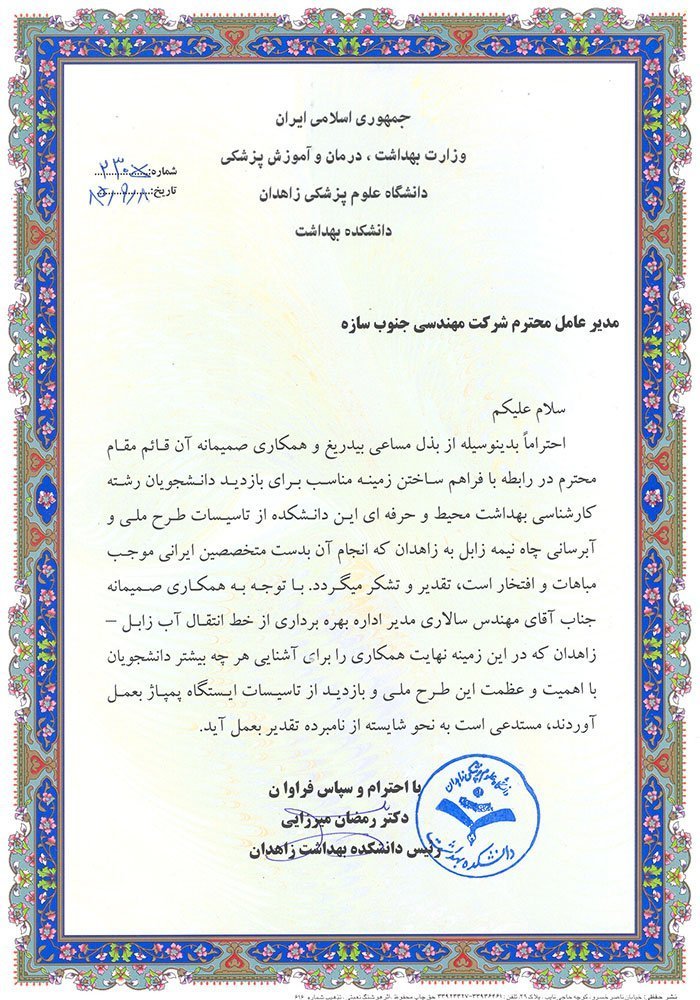 جمهوری اسلامی ایران
وزارت بهداشت ، درمان و آموزش پزشکی
دانشگاه علوم پزشکی زاهدان
دانشکده بهداشت
شماره:
تاریخ:
مدیر عامل محترم شرکت مهندسی جنوب سازه
سلام علیکم
احتراماً بدینوسیله از بذل مساعی بیدریغ و همکاری صمیمانه آن قائم مقام
محترم در رابطه با فراهم ساختن زمینه مناسب برای بازدید دانشجویان رشته
کارشناسی بهداشت محیط و حرفه ای این دانشکده از تاسیسات طرح ملی و
آبرسانی چاه نیمه زابل به زاهدان که انجام آن بدست متخصصین ایرانی موجب
مباهات و افتخار است، تقدیر و تشکر میگردد. با توجه به همکاری صمیمانه
جناب آقای مهندس سالاری مدیر اداره بهره برداری از خط انتقال آب زابل –
زاهدان که در این زمینه نهایت همکاری را برای آشنایی هر چه بیشتر دانشجویان
با اهمیت و عظمت این طرح ملی و بازدید از تاسیسات ایستگاه پمپاژ بعمل
آوردند، مستدعی است به نحو شایسته از نامبرده تقدیر بعمل آید.
با احترام و سپاس فراوا ن
دکتر رمضان میرزایی
رئیس دانشکده بهداشت زاهدان
دانشگاه علوم پزشکی زاهدان
دانشکده بهداشت
نشر حقیقی : خیابان ناصر خسرو، کوچه حاجی نایب ، پلاک ۲۹ تلفن : ۳۳۹۳۶۴۶۱-۳۳۹۲۴۳۲۷ حق چاپ محفوظ . اثر هوشنگ نعمتی . تذهیب شماره ۶۱۶